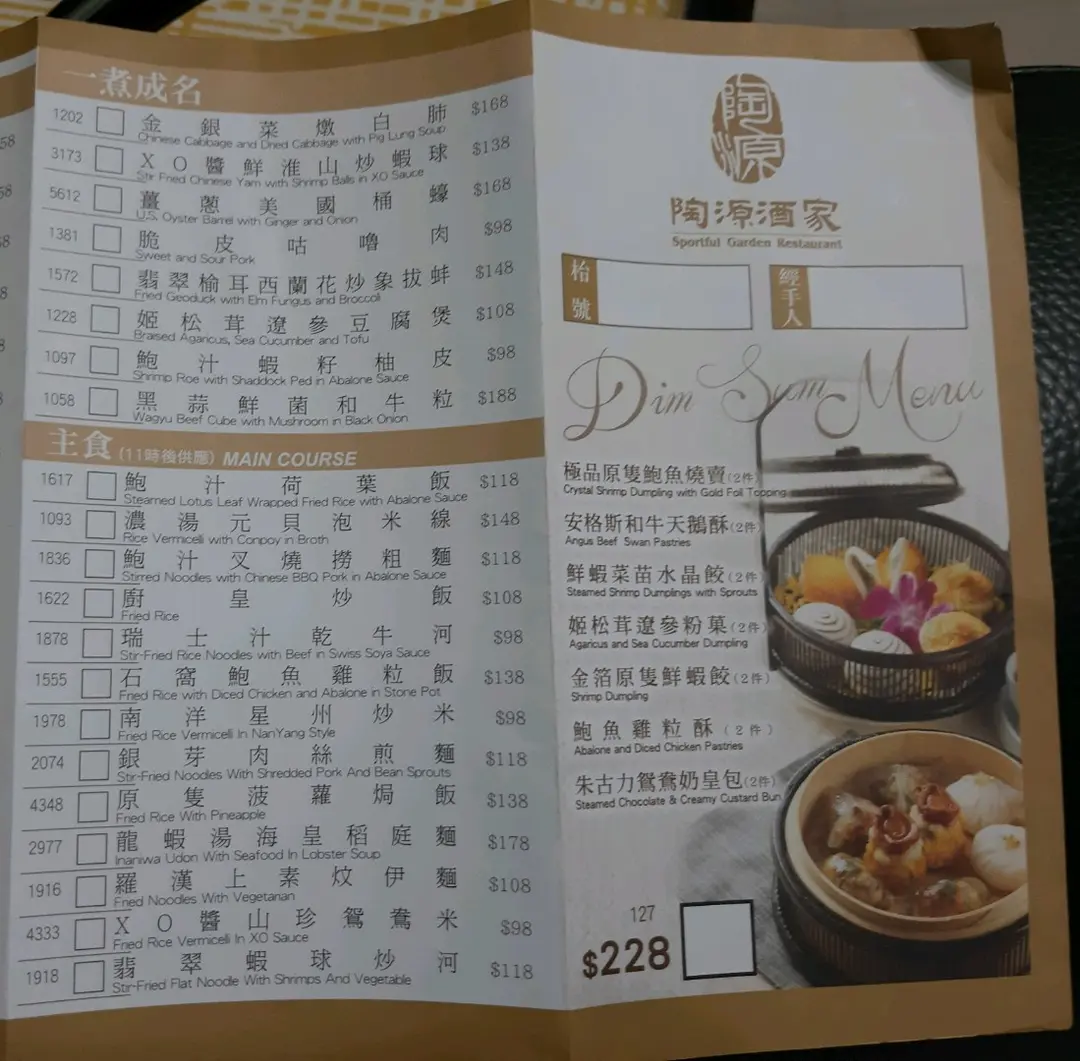 一煮成名
1202 金銀菜燉白肺 $168
Chinese Cabbage and Dried Cabbage with Pig Lung Soup
3173 XO醬鮮淮山炒蝦球 $138
Stir Fried Chinese Yam with Shrimp Balls in XO Sauce
5612 薑蔥美國桶蠔 $168
U.S. Oyster Barrel with Ginger and Onion
1381 脆皮咕嚕肉 $98
Sweet and Sour Pork
1572 翡翠榆耳西蘭花炒象拔蚌 $148
Fried Geoduck with Elm Fungus and Broccoli
1228 姬松茸遼參豆腐煲 $108
Braised Agaricus, Sea Cucumber and Tofu
1097 鮑汁蝦籽柚皮 $98
Shrimp Roe with Shaddock Ped in Abalone Sauce
1058 黑蒜鮮菌和牛粒 $188
Wagyu Beef Cube with Mushroom in Black Onion
主食 (11時後供應) MAIN COURSE
1617 鮑汁荷葉飯 $118
Steamed Lotus Leaf Wrapped Fried Rice with Abalone Sauce
1093 濃湯元貝泡米線 $148
Rice Vermicelli with Conpoy in Broth
1836 鮑汁叉燒撈粗麵 $118
Stirred Noodles with Chinese BBQ Pork in Abalone Sauce
1622 廚皇炒飯 $108
Fried Rice
1878 瑞士汁乾牛河 $98
Stir-Fried Rice Noodles with Beef in Swiss Soya Sauce
1555 石窩鮑魚雞粒飯 $138
Fried Rice with Diced Chicken and Abalone in Stone Pot
1978 南洋星州炒米 $98
Fried Rice Vermicelli In NanYang Style
2074 銀芽肉絲煎麵 $118
Stir-Fried Noodles With Shredded Pork And Bean Sprouts
4348 原隻菠蘿焗飯 $138
Fried Rice With Pineapple
2977 龍蝦湯海皇稻庭麵 $178
Inaniwa Udon With Seafood In Lobster Soup
1916 羅漢上素炆伊麵 $108
Fried Noodles With Vegetarian
4333 XO醬山珍鴛鴦米 $98
Fried Rice Vermicelli In XO Sauce
1918 翡翠蝦球炒河 $118
Stir-Fried Flat Noodle With Shrimps And Vegetable
陶源
陶源酒家
Sportful Garden Restaurant
枱號
經手人
Dim Sum Menu
極品原隻鮑魚燒賣(2件)
Crystal Shrimp Dumpling with Gold Foil Topping
安格斯和牛天鵝酥(2件)
Angus Beef Swan Pastries
鮮蝦菜苗水晶餃(2件)
Steamed Shrimp Dumplings with Sprouts
姬松茸遼參粉菓(2件)
Agaricus and Sea Cucumber Dumpling
金箔原隻鮮蝦餃(2件)
Shrimp Dumpling
鮑魚雞粒酥(2件)
Abalone and Diced Chicken Pastries
朱古力鴛鴦奶皇包(2件)
Steamed Chocolate & Creamy Custard Bun
127
$228